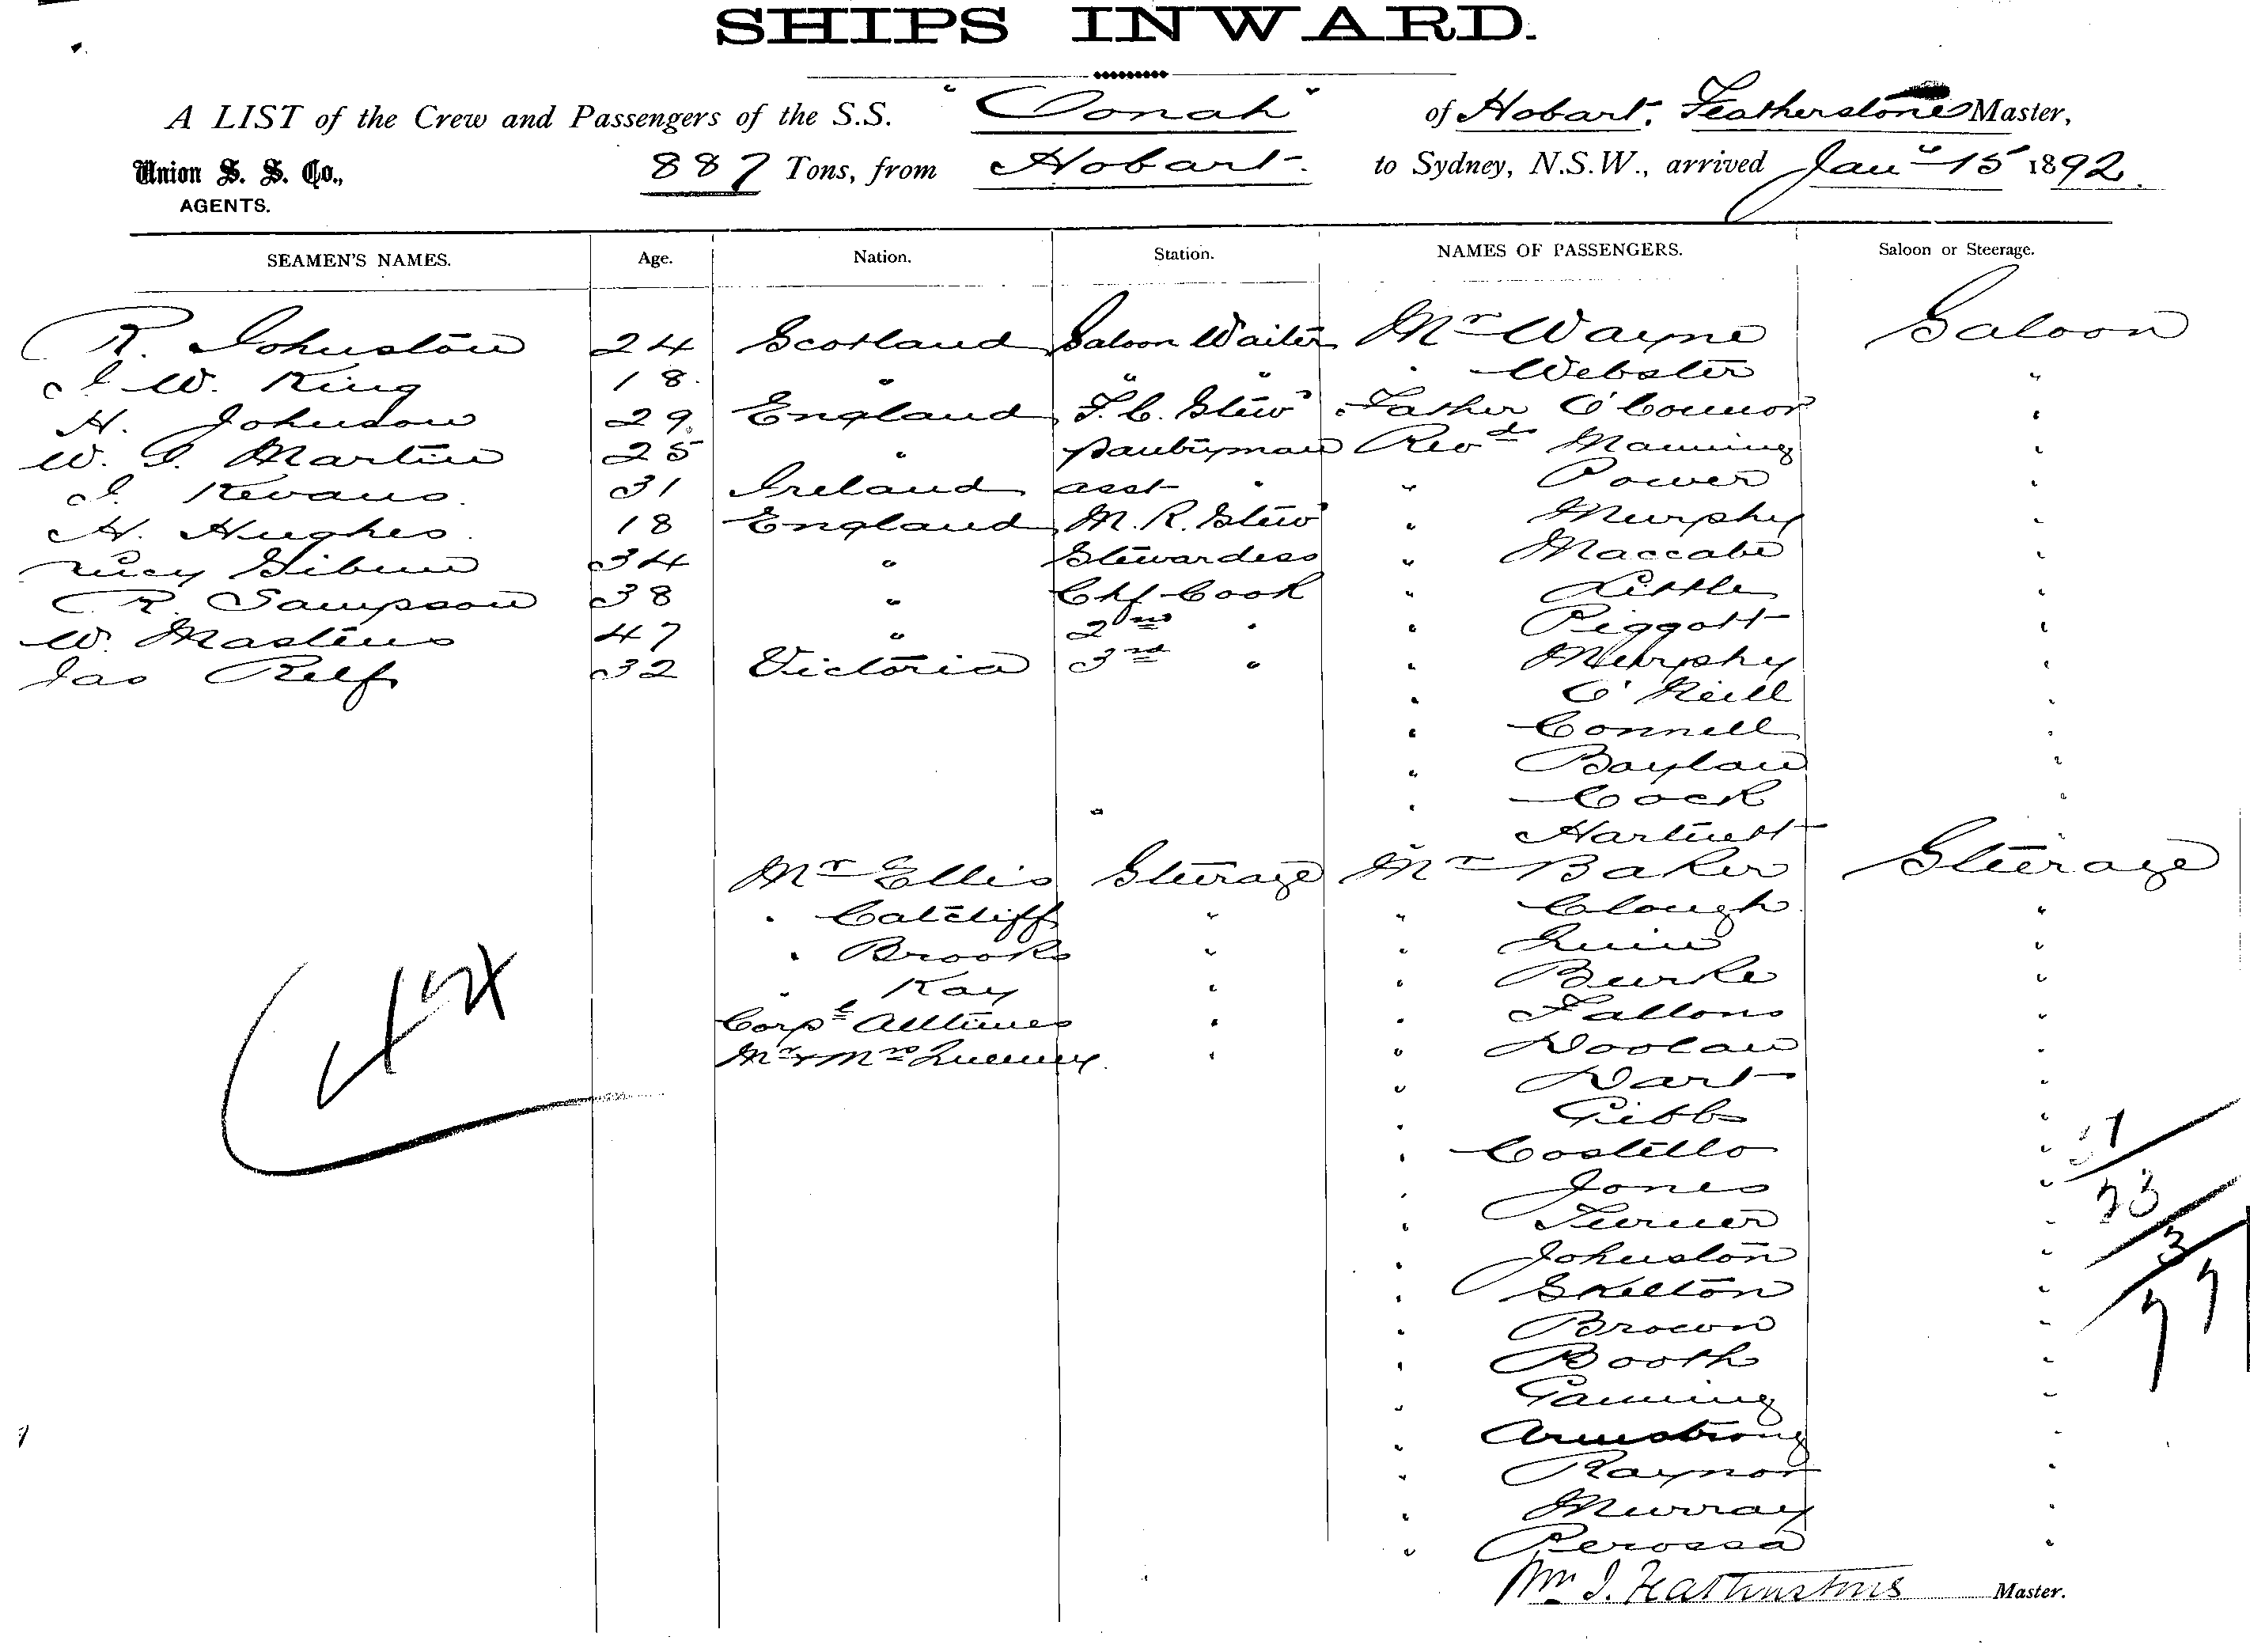 SHIPS INWARD.
A LIST of the Crew and Passengers of the S.S. "Oonah" of Hobart, Featherstone Master,
Union S. S. Co., 887 Tons, from Hobart to Sydney, N.S.W., arrived Jany 15 1892.
AGENTS.
SEAMEN'S NAMES. Age. Nation. Station. NAMES OF PASSENGERS. Saloon or Steerage.
R. Johnston 24 Scotland Saloon Waiter Mr Wayne Saloon
J W. King 18 " " " " Webster "
H. Johnson 29 England F.C. Stewd Father O'Connor "
W. J. Martin 25 " pantryman Revds Manning "
J. Kevans. 31 Ireland asst " " Power "
H. Hughes. 18 England M. R. Stewd " Murphy "
Lucy 34 " Stewardess " Maccabe "
R. Sampson 38 " Chf Cook " Little "
W. Masters 47 " 2nd " " Piggott "
Jas Relf 32 Victoria 3rd " " Murphy "
" O'Neill "
" Connell "
" Baylan "
" " Cock "
" Hartnett "
Mr Ellis Steerage Mr Baker Steerage
" Catcliff " " Clough "
" Brooks " " Quin "
" Kay " " Burke "
Corpl " " Fallons "
Mr & Mrs " " Doolan "
" Dart "
" Gibb "
" Costello "
" Jones "
" Turner "
" Johnston "
" Skelton "
" Brown "
" Booth "
" Ganning "
" Armstrong "
" Raynor "
" Murray "
" Perossa "
Wm J. Featherstone Master.